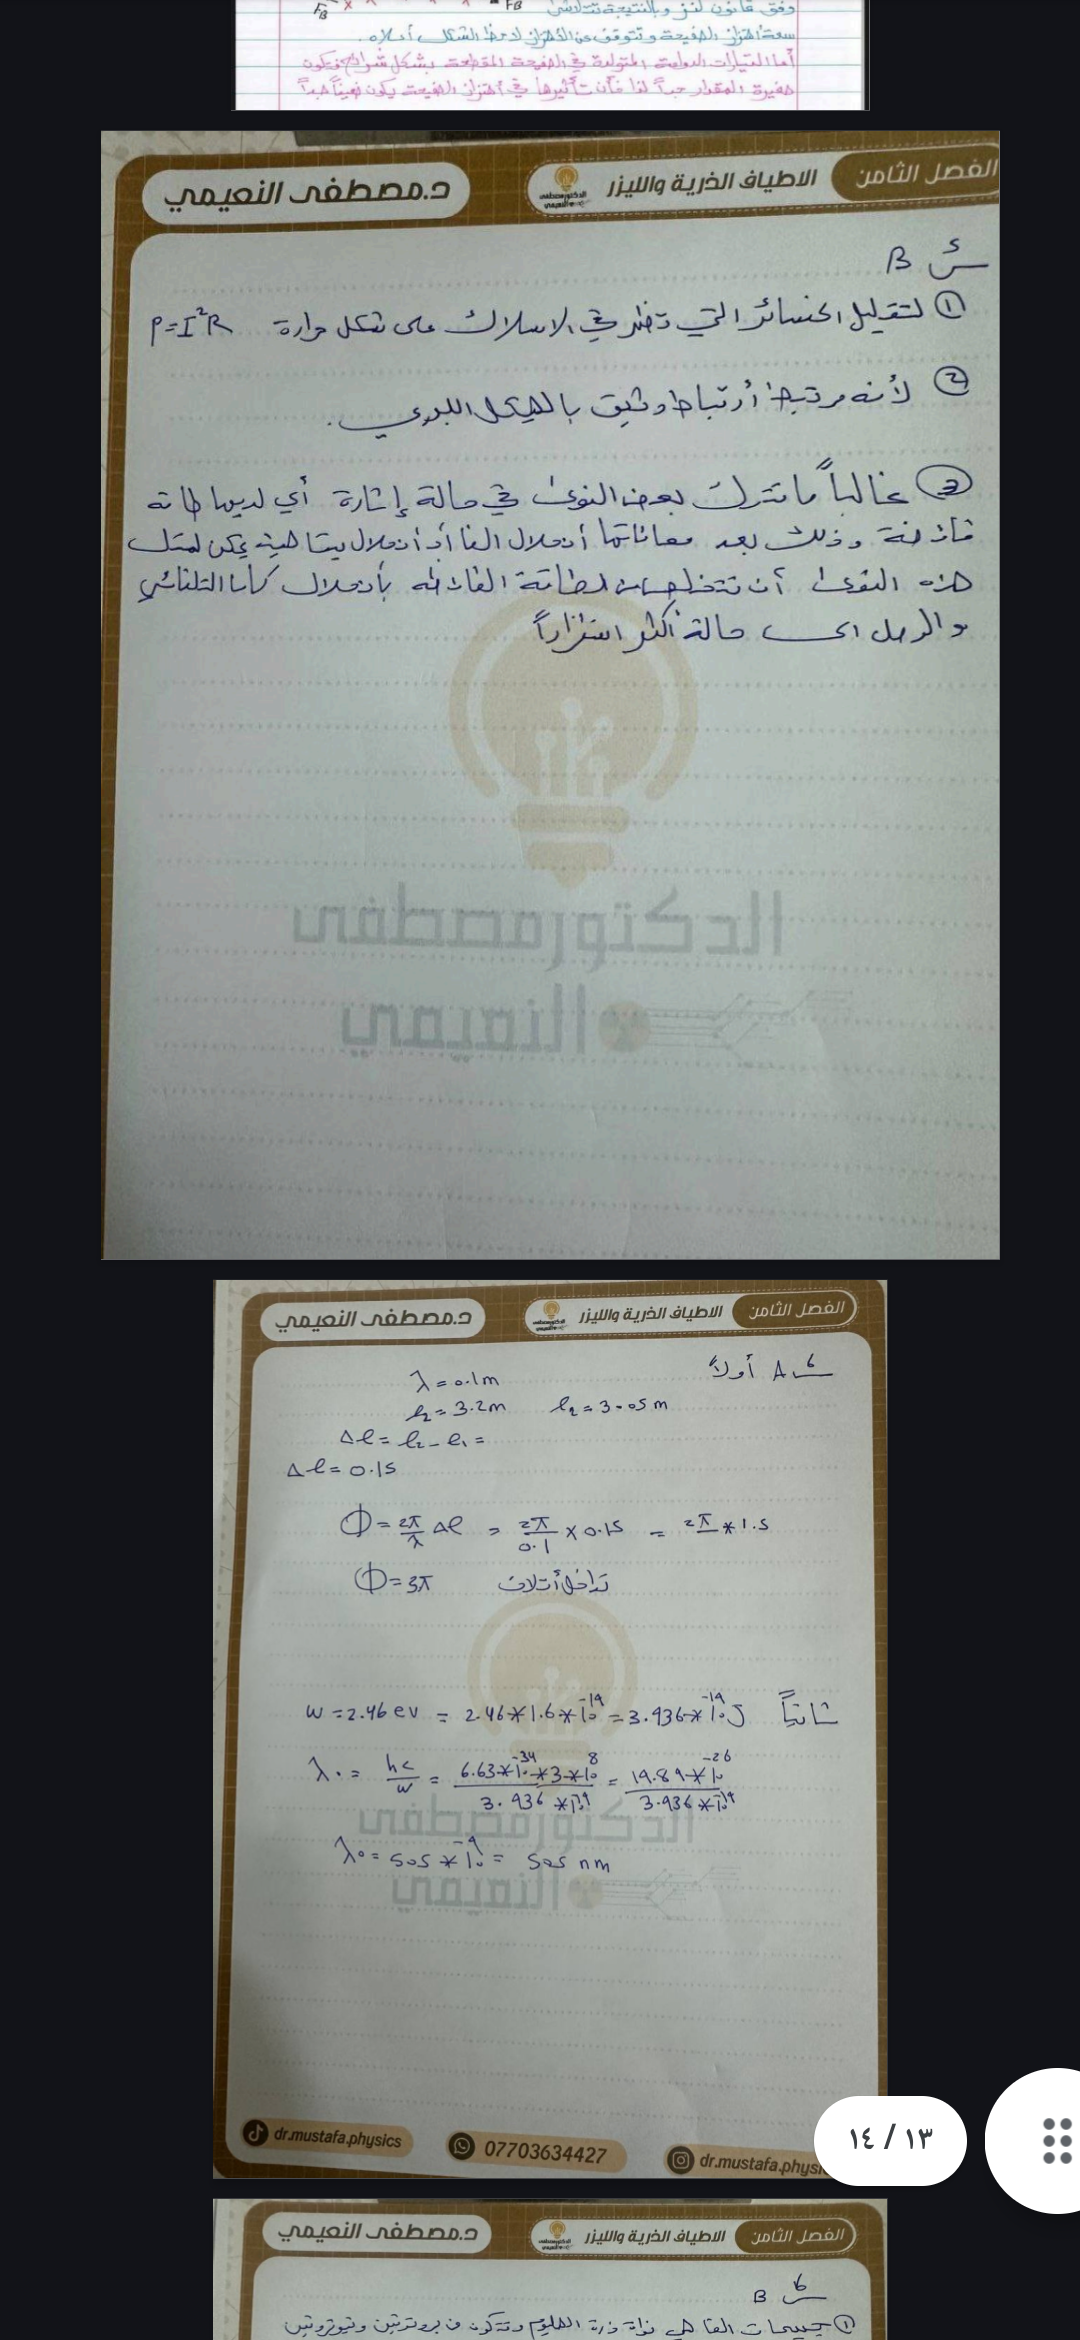 وفق قانون لنز وبالنتيجة تتلاشى
سعة اهتزاز الصفيحة وتتوقف عن الأهتزاز لاحظ الشكل أعلاه.
أما التيارات الدوامة المتولدة في الصفيحة المقطعة بشكل شرائح فتكون
صغيرة المقدار جداً لذا فأن تأثيرها في أهتزاز الصفيحة يكون ضعيفاً جداً
F_B F_B
الفصل الثامن الاطياف الذرية والليزر د.مصطفى النعيمي
س٥ B
① لتقليل الخسائر التي تظهر في الاسلاك على شكل حرارة P=I²R
② لأنه مرتبط أرتباط وثيق بالهيكل البلوري.
③ غالباً ما تترك بعض النوى في حالة إثارة أي لديها طاقة
فائضة وذلك بعد معاناتها أنحلال الفا أو أنحلال بيتا حيث يمكن لمثل
هذه النوى أن تتخلص من الطاقة الفائضة بأنحلال كاما التلقائي
الى حالة أكثر استقراراً
الدكتور مصطفى
النعيمي
الفصل الثامن الاطياف الذرية والليزر د.مصطفى النعيمي
س٦ A أولاً
λ = 0.1m
ℓ₂ = 3.2m ℓ₂ = 3.05m
Δℓ = ℓ₂ - ℓ₁ =
Δℓ = 0.15
Φ = 2π/λ Δℓ = 2π/0.1 × 0.15 = 2π * 1.5
Φ = 3π تداخل أتلاف
ثانياً W = 2.46 ev = 2.46*1.6*10⁻¹⁹ = 3.936*10⁻¹⁹ J
λ₀ = hc/w = 6.63*10⁻³⁴*3*10⁸ / 3.936*10⁻¹⁹ = 19.89*10⁻²⁶ / 3.936*10⁻¹⁹
λ₀ = 505*10⁻⁹ = 505 nm
الدكتور مصطفى
النعيمي
dr.mustafa.physics 07703634427 dr.mustafa.physi
١٣ / ١٤
الفصل الثامن الاطياف الذرية والليزر د.مصطفى النعيمي
س٦ B
① جسيمات الفا هي نواة ذرة الهليوم وتتكون من بروتونين ونيوترونين